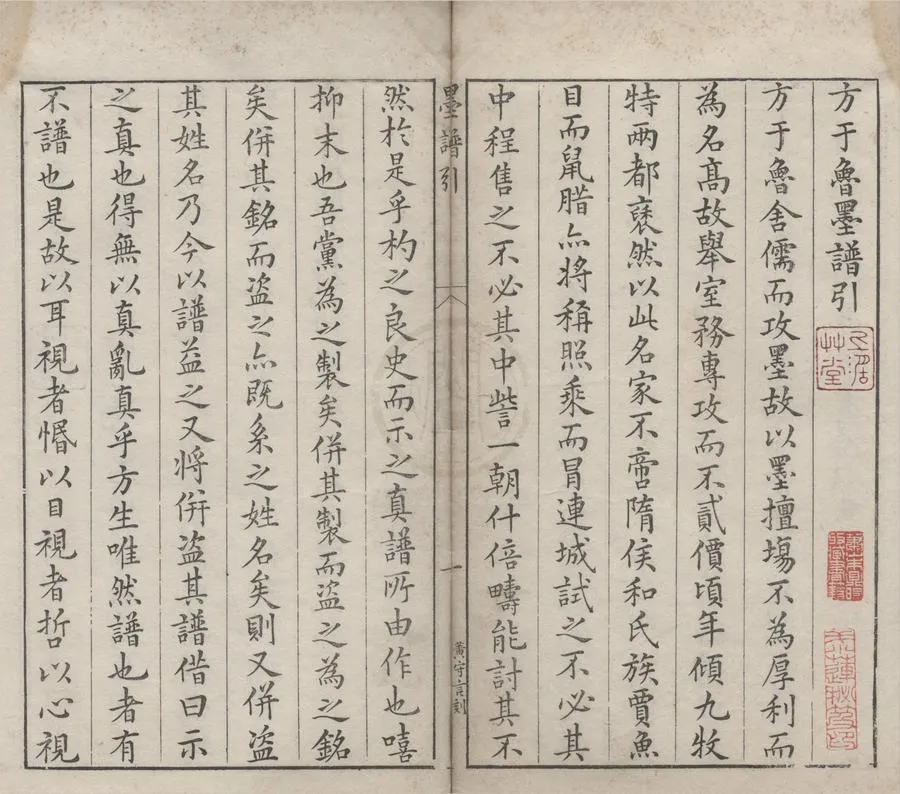 方于魯墨譜引
方于魯舍儒而攻墨故以墨擅塲不為厚利而
為名髙故舉室務專攻而不貳價頃年傾九牧
特兩都裒然以此名家不啻隋侯和氏族賈魚
目而鼠腊亦將稱照乘而冒連城試之不必其
中程售之不必其中訾一朝什倍疇能討其不
墨譜引
一
黄守言刻
然於是乎杓之良史而示之真譜所由作也嘻
抑末也吾黨為之製矣併其製而盗之為之銘
矣併其銘而盗之亦既系之姓名矣則又併盗
其姓名乃今以譜益之又将併盗其譜偕曰示
之真也得無以真亂真乎方生唯然譜也者有
不譜也是故以耳視者惛以目視者哲以心視